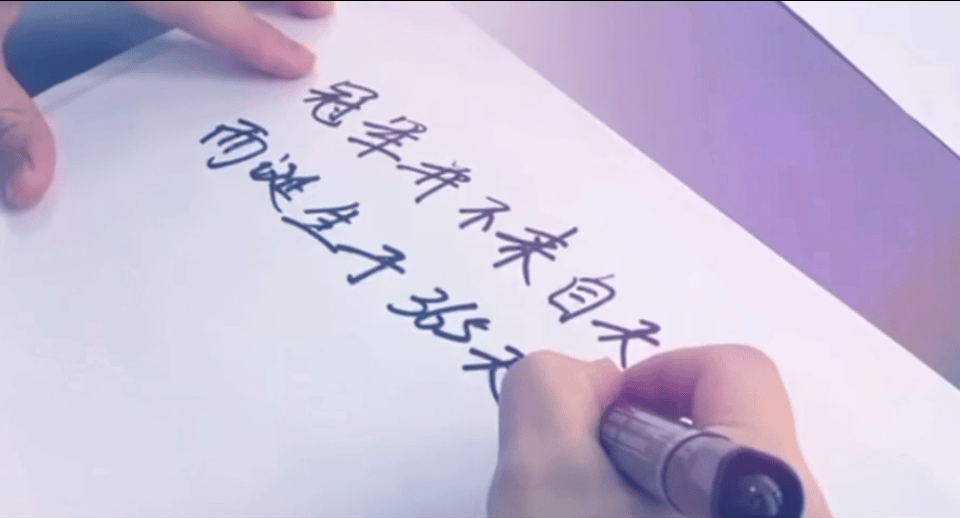 冠军并不来自天
而诞生于365天